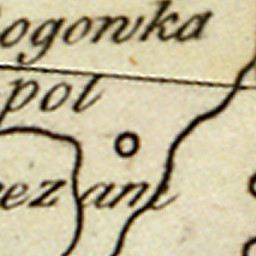 ogowka
pol
ezani